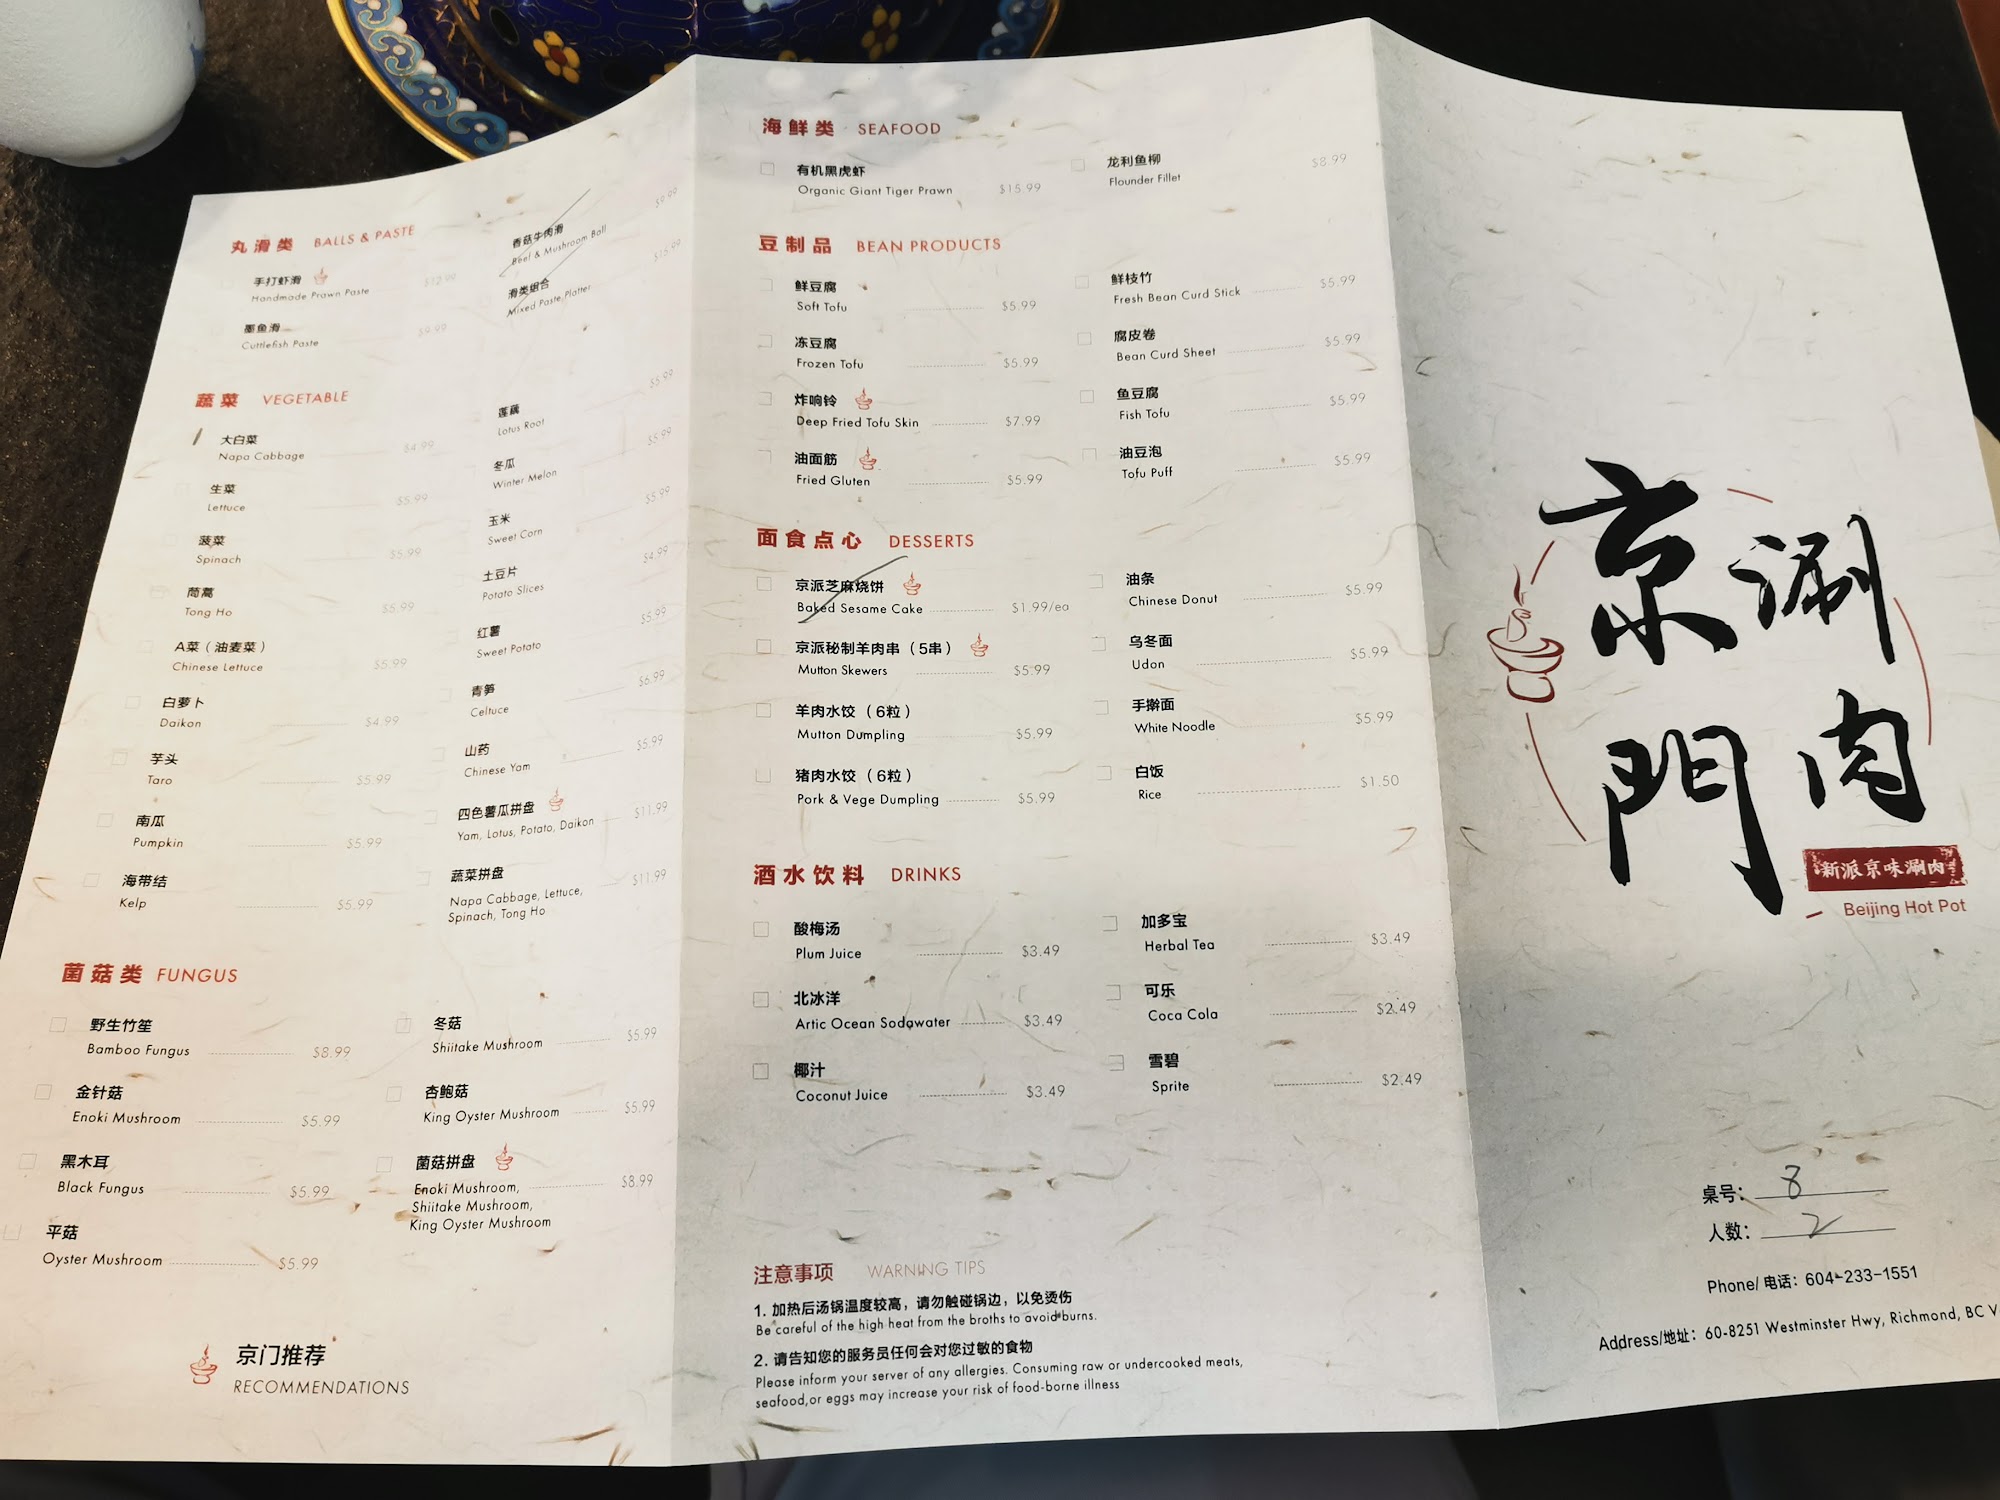 丸滑类 BALLS & PASTE
手打虾滑
Handmade Prawn Paste $12.99
墨鱼滑
Cuttlefish Paste $9.99
香菇牛肉滑 $9.99
Beef & Mushroom Ball
滑类组合 $15.99
Mixed Paste Platter
蔬菜 VEGETABLE
大白菜
Napa Cabbage $4.99
生菜
Lettuce $5.99
菠菜
Spinach $5.99
茼蒿
Tong Ho $5.99
A菜（油麦菜）
Chinese Lettuce $5.99
白萝卜
Daikon $4.99
芋头
Taro $5.99
南瓜
Pumpkin $5.99
海带结
Kelp $5.99
莲藕 $5.99
Lotus Root
冬瓜 $5.99
Winter Melon
玉米 $5.99
Sweet Corn
土豆片 $4.99
Potato Slices
红薯 $5.99
Sweet Potato
青笋 $6.99
Celtuce
山药 $5.99
Chinese Yam
四色薯瓜拼盘 $11.99
Yam, Lotus, Potato, Daikon
蔬菜拼盘 $11.99
Napa Cabbage, Lettuce,
Spinach, Tong Ho
菌菇类 FUNGUS
野生竹笙
Bamboo Fungus $8.99
金针菇
Enoki Mushroom $5.99
黑木耳
Black Fungus $5.99
平菇
Oyster Mushroom $5.99
冬菇
Shiitake Mushroom $5.99
杏鲍菇
King Oyster Mushroom $5.99
菌菇拼盘
Enoki Mushroom, $8.99
Shiitake Mushroom,
King Oyster Mushroom
京门推荐
RECOMMENDATIONS
海鲜类 SEAFOOD
有机黑虎虾
Organic Giant Tiger Prawn $15.99
龙利鱼柳 $8.99
Flounder Fillet
豆制品 BEAN PRODUCTS
鲜豆腐
Soft Tofu $5.99
冻豆腐
Frozen Tofu $5.99
炸响铃
Deep Fried Tofu Skin $7.99
油面筋
Fried Gluten $5.99
鲜枝竹
Fresh Bean Curd Stick $5.99
腐皮卷
Bean Curd Sheet $5.99
鱼豆腐
Fish Tofu $5.99
油豆泡
Tofu Puff $5.99
面食点心 DESSERTS
京派芝麻烧饼
Baked Sesame Cake $1.99/ea
京派秘制羊肉串（5串）
Mutton Skewers $5.99
羊肉水饺（6粒）
Mutton Dumpling $5.99
猪肉水饺（6粒）
Pork & Vege Dumpling $5.99
油条
Chinese Donut $5.99
乌冬面
Udon $5.99
手擀面
White Noodle $5.99
白饭
Rice $1.50
酒水饮料 DRINKS
酸梅汤
Plum Juice $3.49
北冰洋
Artic Ocean Sodawater $3.49
椰汁
Coconut Juice $3.49
加多宝
Herbal Tea $3.49
可乐
Coca Cola $2.49
雪碧
Sprite $2.49
注意事项 WARNING TIPS
1. 加热后汤锅温度较高，请勿触碰锅边，以免烫伤
Be careful of the high heat from the broths to avoid burns.
2. 请告知您的服务员任何会对您过敏的食物
Please inform your server of any allergies. Consuming raw or undercooked meats,
seafood,or eggs may increase your risk of food-borne illness
京門
涮肉
新派京味涮肉
Beijing Hot Pot
桌号： 8
人数： 2
Phone/ 电话：604-233-1551
Address/地址：60-8251 Westminster Hwy, Richmond, BC V